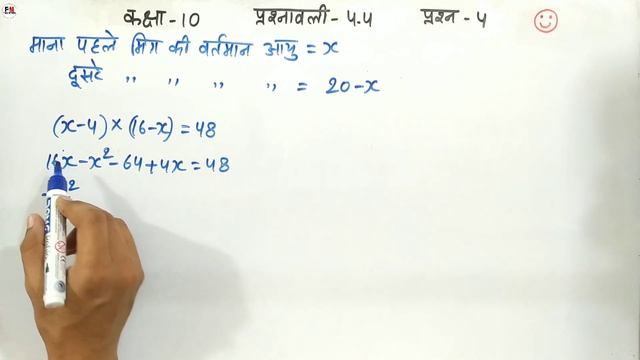 FM
कक्षा - 10 प्रश्नावली - 4.4 प्रश्न - 4
माना पहले मित्र की वर्तमान आयु = x
दूसरे ,, ,, ,, ,, = 20-x
(x-4) × (16-x) = 48
16x - x² - 64 + 4x = 48